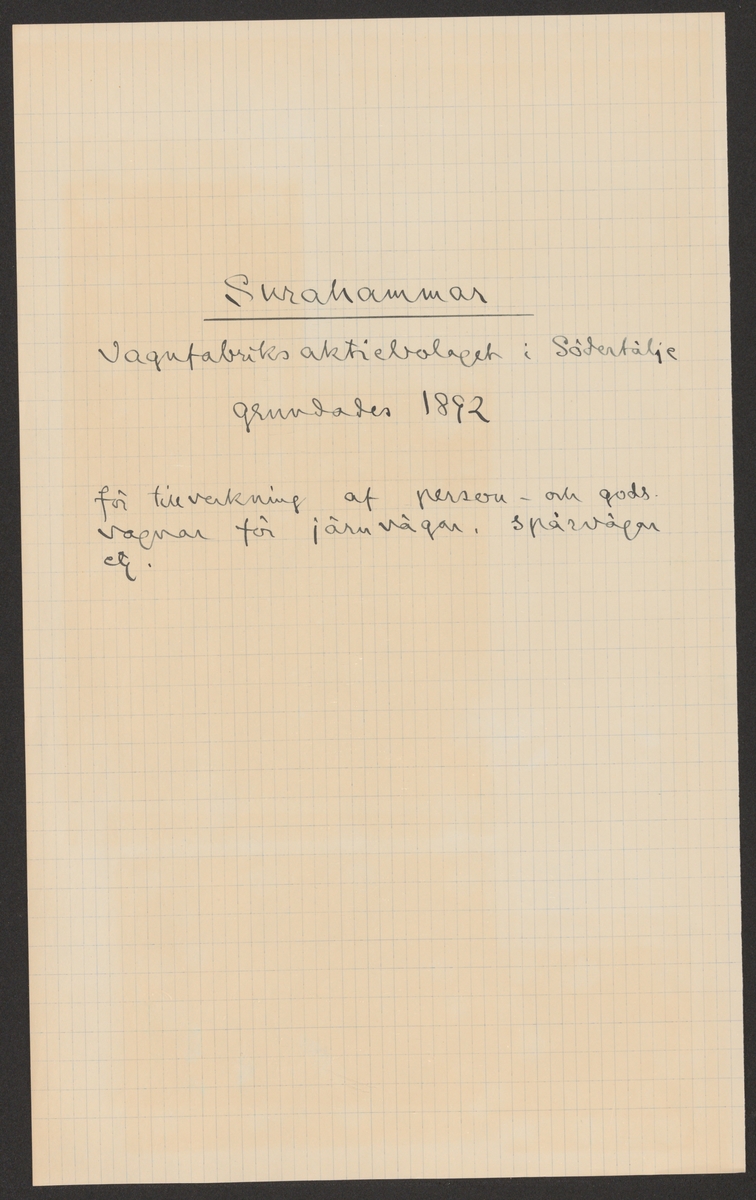 Surahammar
Vagnfabriksaktiebolaget i Södertälje
grundades 1892
för tillverkning af person- och gods-
vagnar för järnvägar, spårvägar
etc.